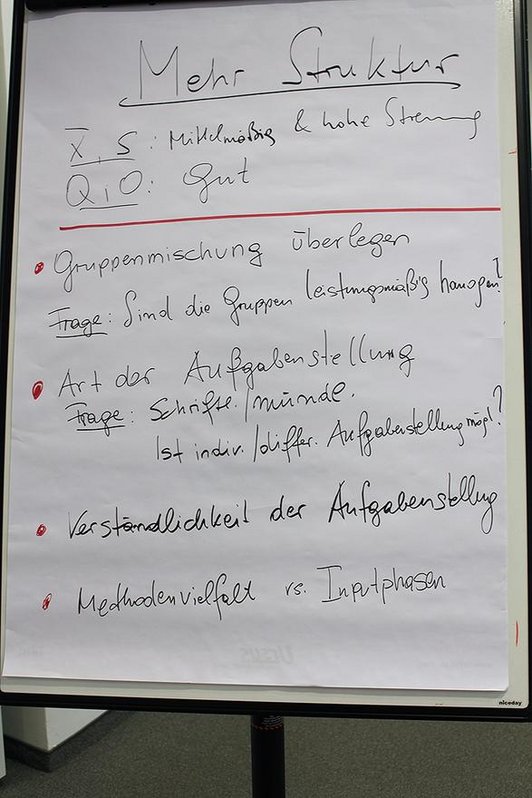 Mehr Struktur
X, S: Mittelmäßig & hohe Streuung
Q, O: Gut
Gruppenmischung überlegen
Frage: Sind die Gruppen leistungsmäßig homogen?
Art der Aufgabenstellung
Frage: Schriftl./münd.
Ist indiv./differ. Aufgabenstellung mögl?
Verständlichkeit der Aufgabenstellung
Methodenvielfalt vs. Inputphasen
nicoday